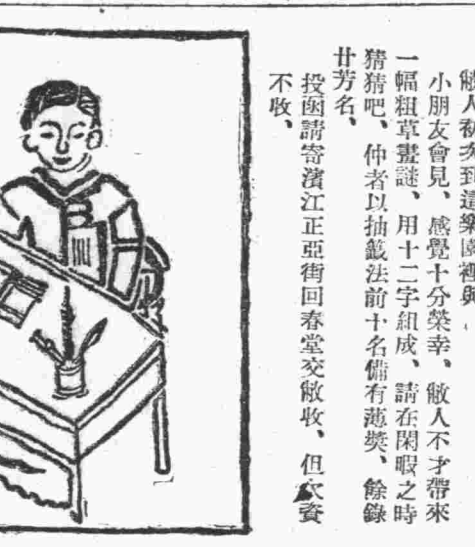 敝人初次到這樂園裡與
小朋友會見、感覺十分榮幸、敝人不才帶來
一幅粗草畫謎、用十二字組成、請在閑暇之時
猜猜吧、仲者以抽籤法前十名備有薄獎、餘錄
廿芳名、
投函請寄濱江正亞街回春堂交敝收、但欠資
不收、